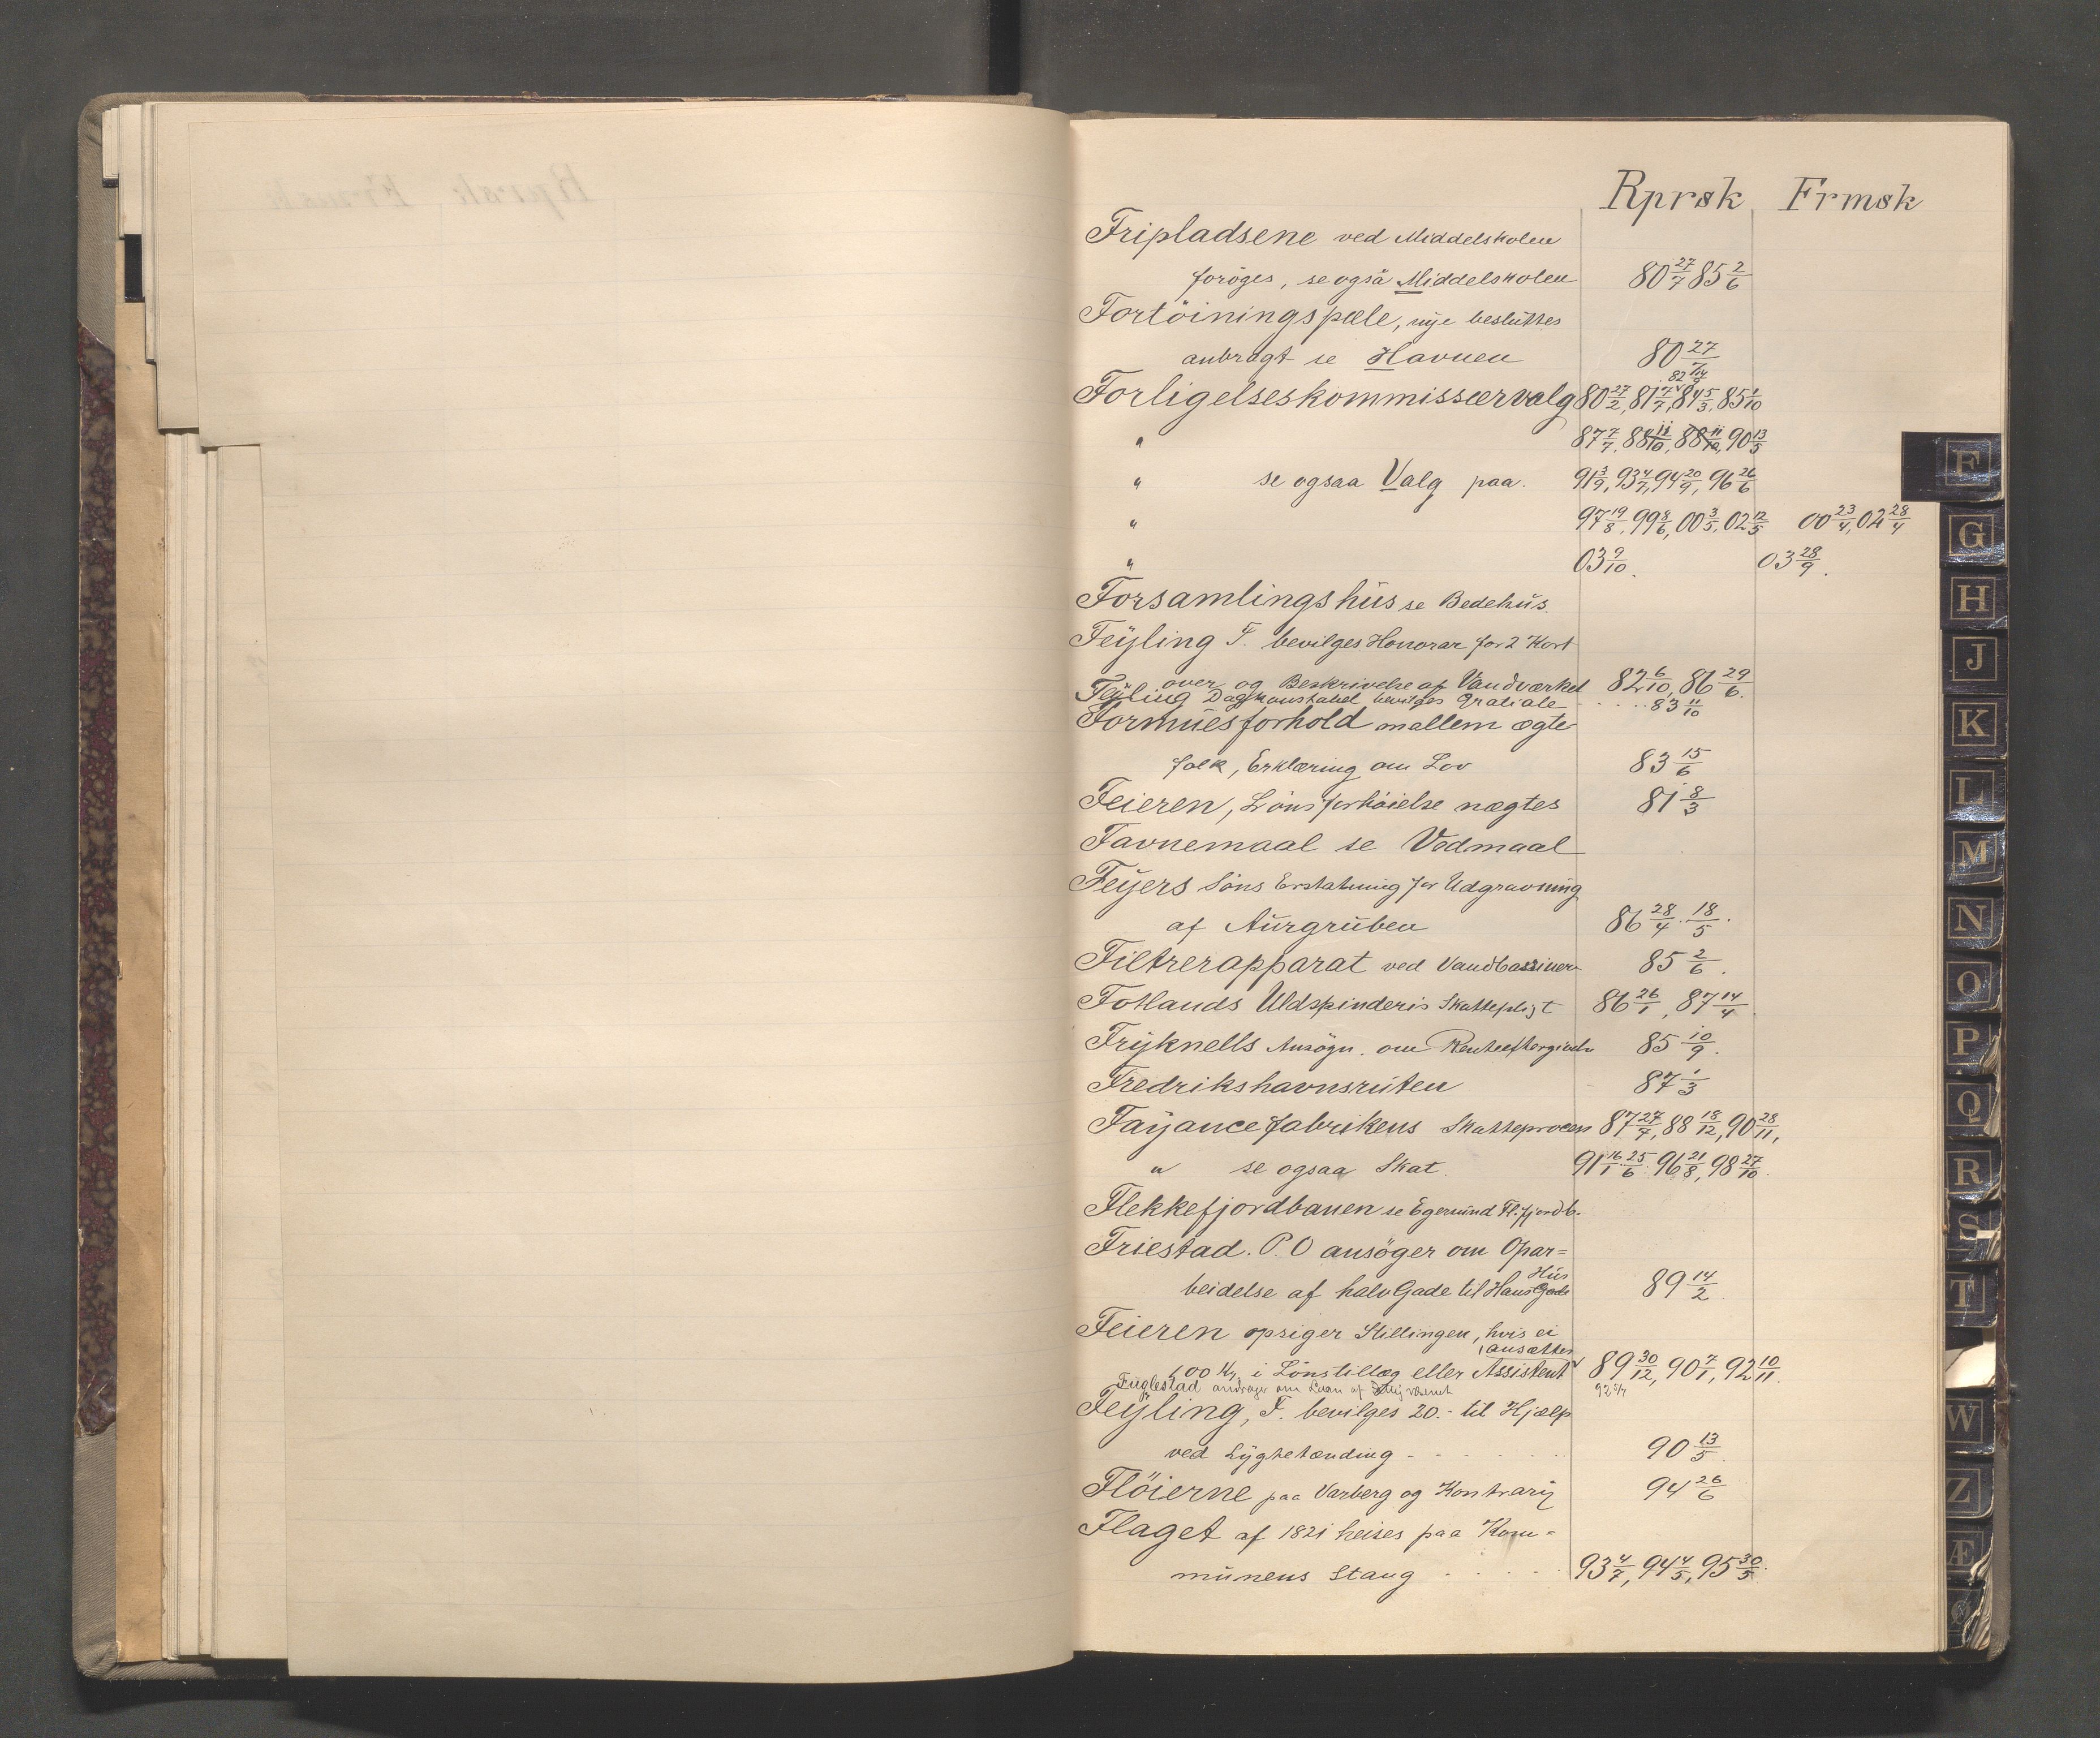 Rprsk Frmsk
Fripladsene ved Middelskolen
foröges, se også Middelskolen 80 27/7 85 2/6
Fortöiningspæle, nye besluttes
anbragt se Havnen 80 27/7
82 14/9
Forligelseskommissærvalg 80 27/2, 81 7/7, 84 5/3, 85 1/10
" 87 7/7, 88 11/10, 88 11/12, 90 13/5
" se ogsaa Valg paa. 91 3/9, 93 4/7, 94 20/9, 96 26/6
" 97 19/8, 99 8/6, 00 3/5, 02 12/5 00 23/4, 02 28/4
" 03 9/10. 03 28/9.
Forsamlingshus se Bedehus.
Feyling F. bevilges Honorar for 2 Kort
over og Beskrivelse af Vandværket 82 6/10, 86 29/6.
Feyling Dagkonstabel bevilges Gratiale 83 11/10
Formuesforhold mellem ægte
folk, Erklæring om Lov 83 15/6
Feieren, Lönsforhöielse nægtes 81 8/3
Favnemaal se Vedmaal
Feyers Söns Erstatning for Udgravning
af Aurgruben 86 28/4. 18/5.
Filtrerapparat ved Vandbassiner 85 2/6.
Fotlands Uldspinderis Skattepligt 86 26/1, 87 14/4
Fryknells Ansögn. om 85 10/9.
Fredrikshavnsruten 87 1/3
Fayancefabrikens Skatteproces 87 27/7, 88 18/12, 90 28/11,
" se ogsaa Skat. 91 16/1 25/6. 96 21/8, 98 27/10.
Flekkefjordbanen se Egersund Fl.fjordb.
Friestad. P. O ansöger om Opar=
Hus
beidelse af halv Gade til Hans Gade 89 14/2
Feieren opsiger Stillingen, hvis ei
ansættes
100 Kr i Lönstillæg eller Assistent 89 30/12, 90 7/1, 92 10/11.
Fuglestad andrager om Laan af
Feyling, F. bevilges 20.- til Hjælp
ved Lygtetænding 90 13/5.
Flöierne paa Varberg og Kontrari 94 26/6
Flaget af 1821 heises paa Kom=
munens Stang 93 4/7, 94 4/5, 95 30/5.
F
G
H
J
K
L
M
N
O
P
Q
R
S
T
W
Z
Æ
Ø